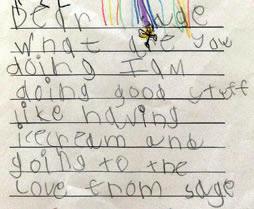 Dear
what are you
doing I AM
doing good stuff
like having
icecream and
going to the
love from sage